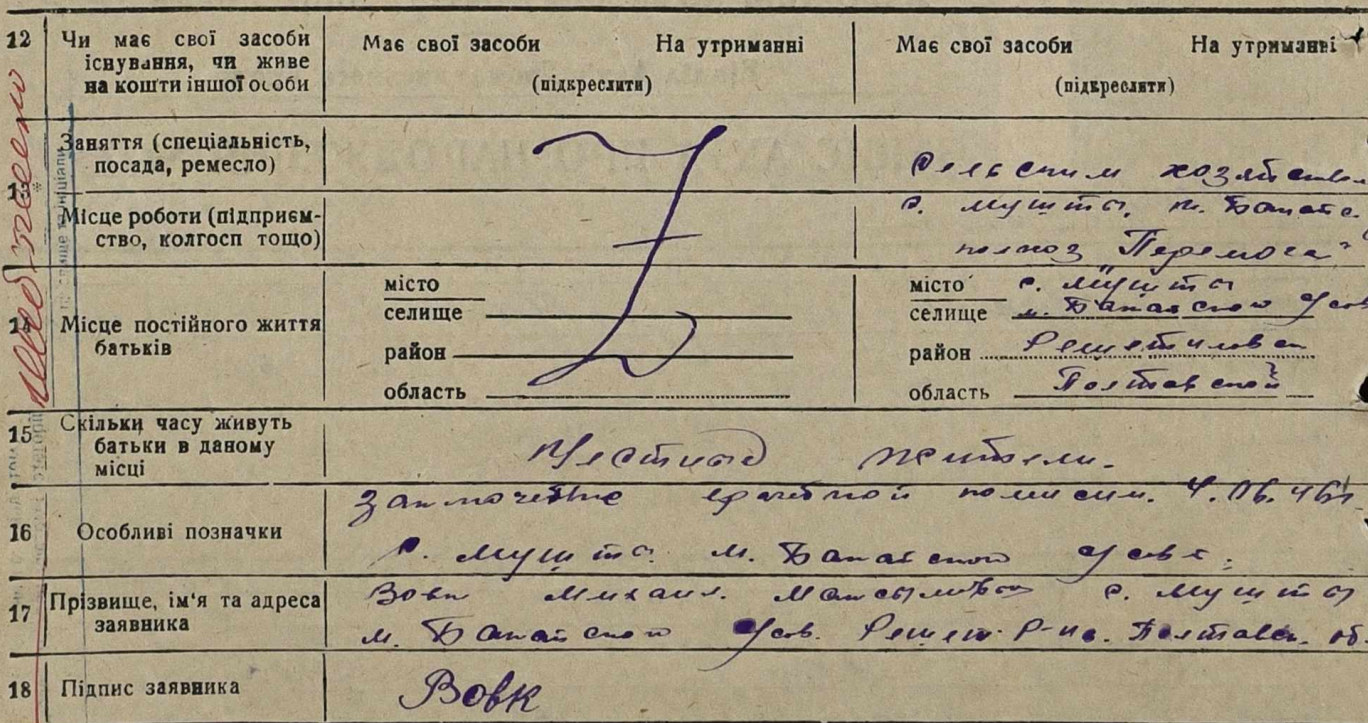 12 Чи має свої засоби існування, чи живе на кошти іншої особи
Має свої засоби На утриманні
(підкреслити)
Має свої засоби На утриманні
(підкреслити)
13 Заняття (спеціальність, посада, ремесло)
Сельским хозяйство
Місце роботи (підприємство, колгосп тощо)
с. Мушта, М. Бакайс.
колхоз "Перемога"
14 Місце постійного життя батьків
місто
селище
район
область
місто с. Мушта
селище М. Бакайского
район Решетиловск
область Полтавской
15 Скільки часу живуть батьки в даному місці
Местные жители.
16 Особливі позначки
Заключение врачебной комисии. 4.06.46
с. Мушта М. Бакайского
17 Прізвище, ім'я та адреса заявника
Вовк Михаил с. Мушта
М. Бакайского Решет. Р-на. Полтавск. об.
18 Підпис заявника
Вовк